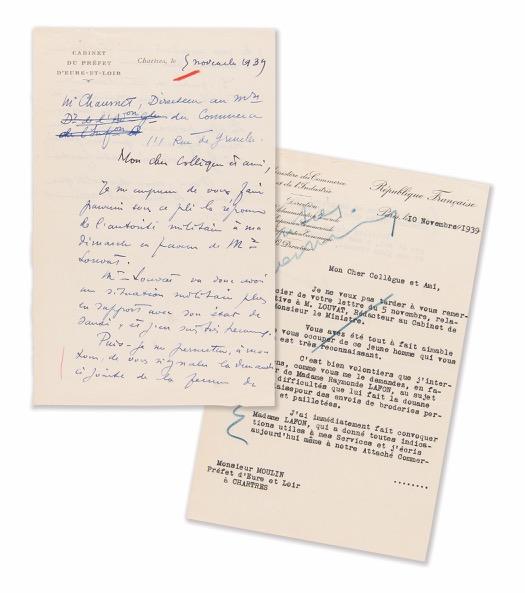 CABINET
DU PRÉFET
D'EURE-ET-LOIR
Chartres, le 5 novembre 1939
Mr Chaumet, Directeur au mère
du Commerce
111 Rue de Grenelle
Mon cher Collègue et ami,
Je m'empresse de vous faire
parvenir sous ce pli la réponse
de l'autorité militaire à ma
démarche en faveur de Mr
Louvat.
Mr Louvat va donc avoir
une situation militaire plus
en rapport avec son état de
santé, et j'en suis très heureux.
Puis-je me permettre, à mon
tour, de vous signaler la demande
ci jointe de la femme de
Ministère du Commerce
et de l'Industrie
République Française
Direction
Paris, le 10 Novembre 1939
Mon Cher Collègue et Ami,
Je ne veux pas tarder à vous remer-
cier de votre lettre du 5 novembre, rela-
tive à M. LOUVAT, Rédacteur au Cabinet de
Monsieur le Ministre.
Vous avez été tout à fait aimable
vous occuper de ce jeune homme qui vous
est très reconnaissant.
C'est bien volontiers que j'inter-
ns, comme vous me le demandez, en fa-
r de Madame Raymonde LAFON, au sujet
difficultés que lui fait la douane
laise pour des envois de broderies per-
et pailletées.
J'ai immédiatement fait convoquer
Madame LAFON, qui a donné toutes indica-
tions utiles à mes Services et j'écris
aujourd'hui même à notre Attaché Commer-
........
Monsieur MOULIN
Préfet d'Eure et Loir
à CHARTRES